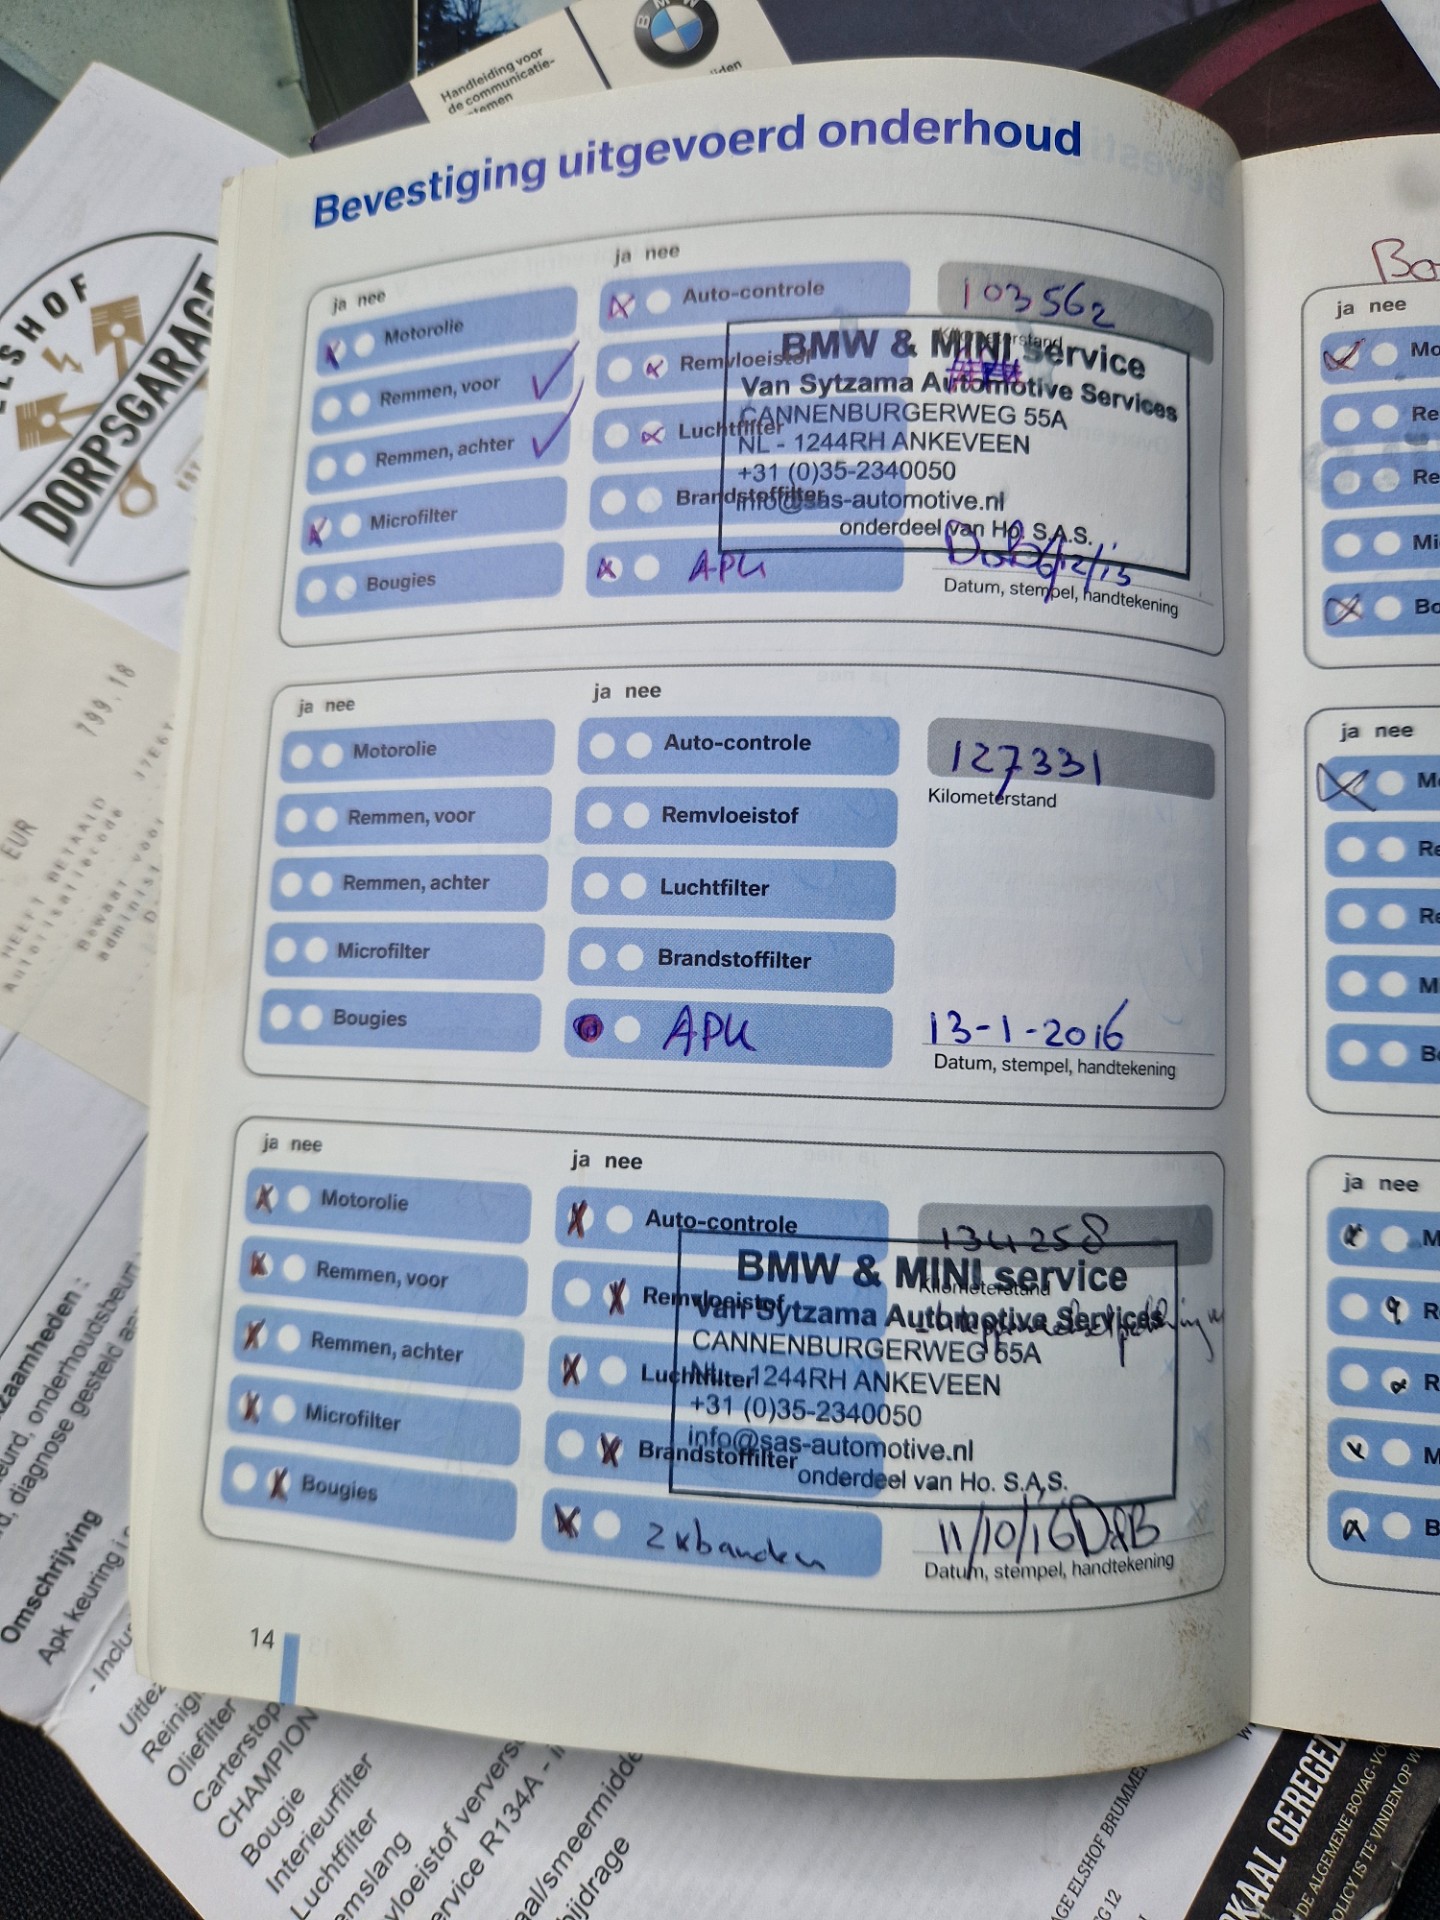 Handleiding voor
de communicatie-
BMW
Bevestiging uitgevoerd onderhoud
ja nee
Motorolie
Remmen, voor
Remmen, achter
Microfilter
Bougies
ja nee
Auto-controle
Remvloeistof
Luchtfilter
Brandstoffilter
APK
103562
Kilometerstand
BMW & MINI service
Van Sytzama Automotive Services
CANNENBURGERWEG 55A
NL - 1244RH ANKEVEEN
+31 (0)35-2340050
info@sas-automotive.nl
onderdeel van Ho. S.A.S.
Datum, stempel, handtekening
ja nee
Motorolie
Remmen, voor
Remmen, achter
Microfilter
Bougies
ja nee
Auto-controle
Remvloeistof
Luchtfilter
Brandstoffilter
APK
127331
Kilometerstand
13-1-2016
Datum, stempel, handtekening
ja nee
Motorolie
Remmen, voor
Remmen, achter
Microfilter
Bougies
ja nee
Auto-controle
Remvloeistof
Luchtfilter
Brandstoffilter
2xbanden
134258
Kilometerstand
BMW & MINI service
Van Sytzama Automotive Services
CANNENBURGERWEG 55A
NL - 1244RH ANKEVEEN
+31 (0)35-2340050
info@sas-automotive.nl
onderdeel van Ho. S.A.S.
11/10/16 DdB
Datum, stempel, handtekening
14
ja nee
ja nee
ja nee
DORPSGARAGE
799.18
EUR
HEEFT BETAALD
Autorisatiecode
Bewaar voor
Omschrijving
Apk keuring
Oliefilter
CHAMPION
Bougie
Interieurfilter
Luchtfilter
bijdrage
LOKAAL GEREGELD
DE ALGEMENE BOVAG-VO
POLICY IS TE VINDEN OP W